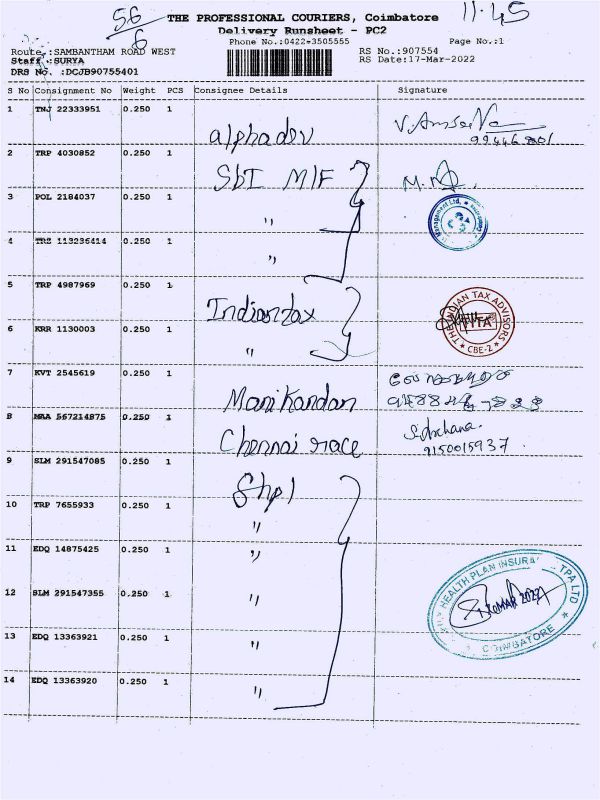 56
6
11.45
THE PROFESSIONAL COURIERS, Coimbatore
Delivery Runsheet - PC2
Phone No.:0422-3505555
Page No.:1
Route :SAMBANTHAM ROAD WEST
RS No.:907554
Staff :SURYA
RS Date:17-Mar-2022
DRS No. :DCJB90755401
S No Consignment No Weight PCS Consignee Details Signature
1 TNJ 22333951 0.250 1
alphadev
2 TRP 4030852 0.250 1
SbI M/F
3 POL 2184037 0.250 1
"
Management Ltd.
4 TRZ 113236414 0.250 1
"
5 TRP 4987969 0.250 1
Indiantax
THE INDIAN TAX ADVISORS
CBE-2
6 KRR 1130003 0.250 1
"
7 KVT 2545619 0.250 1
Manikandan
8 MAA 567214875 0.250 1
Chennai race
S. Archana.
9150015937.
9 SLM 291547085 0.250 1
Shpl
10 TRP 7655933 0.250 1
"
11 EDQ 14875425 0.250 1
"
12 SLM 291547355 0.250 1
"
HEALTH PLAN INSURA TPA LTD
MAR 2022
COIMBATORE
13 EDQ 13363921 0.250 1
"
14 EDQ 13363920 0.250 1
"